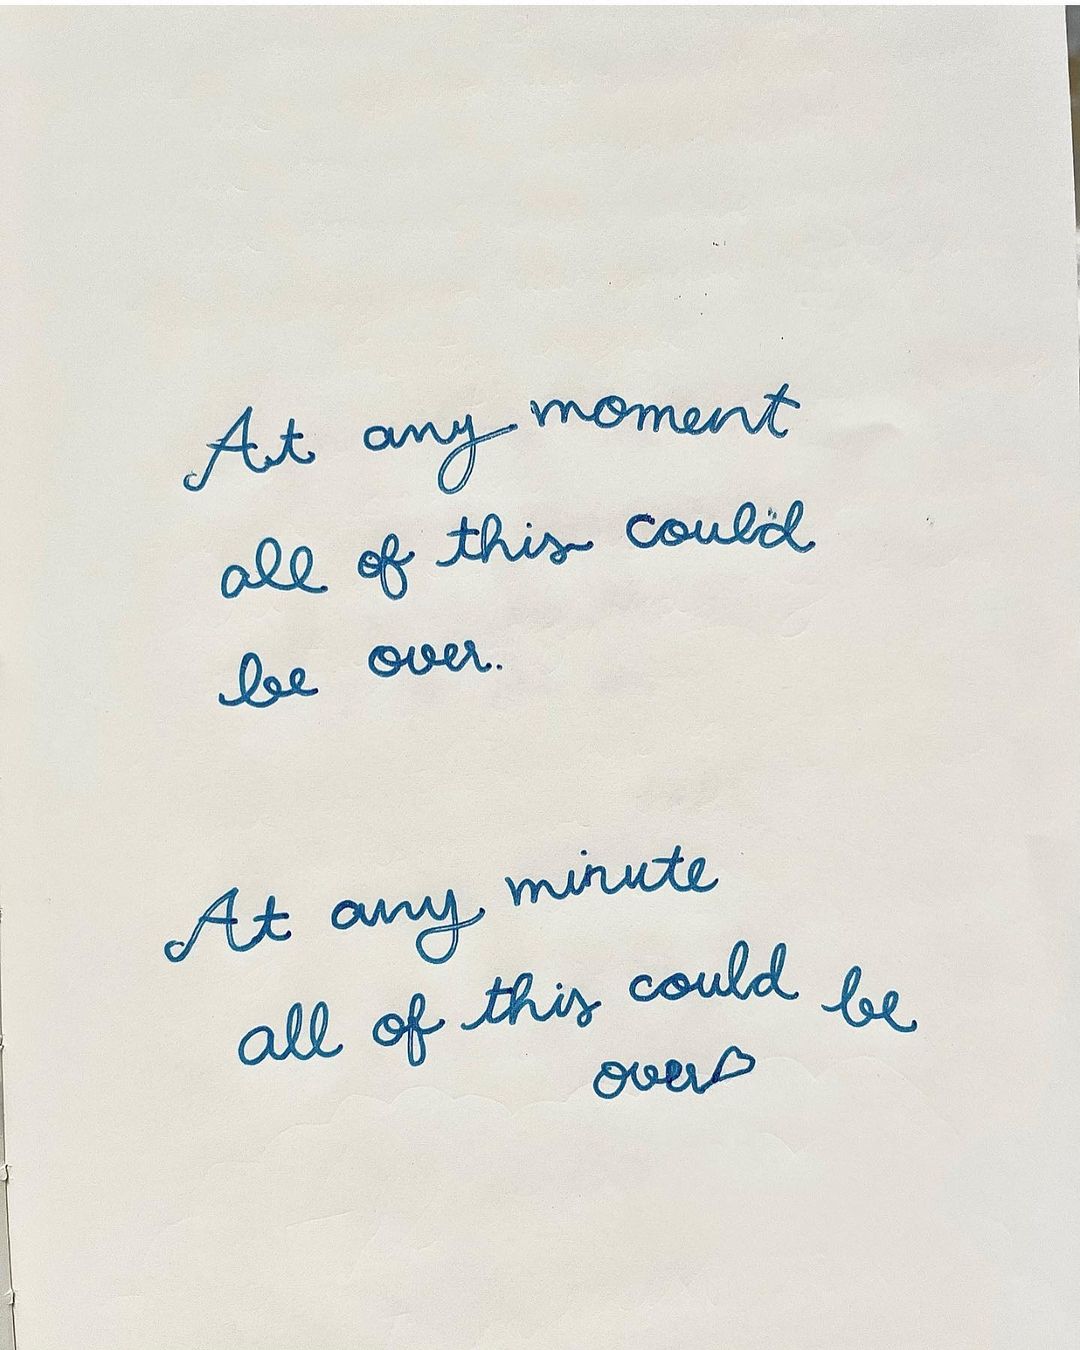 At any moment
all of this could
be over.
At any minute
all of this could be
over